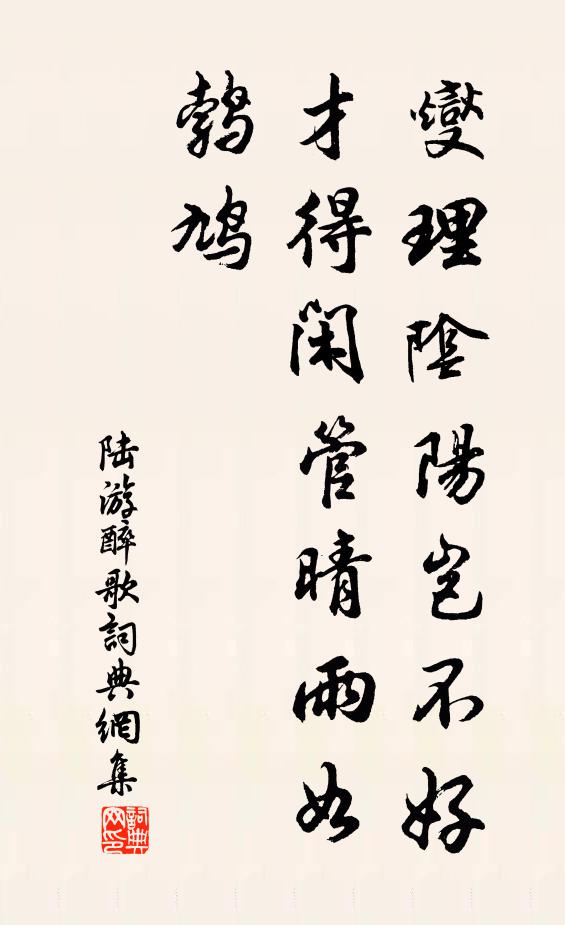 燮理陰陽豈不好
才得閑管晴雨如
鵓鳩
陆游醉歌詞典網集
詞典
网印